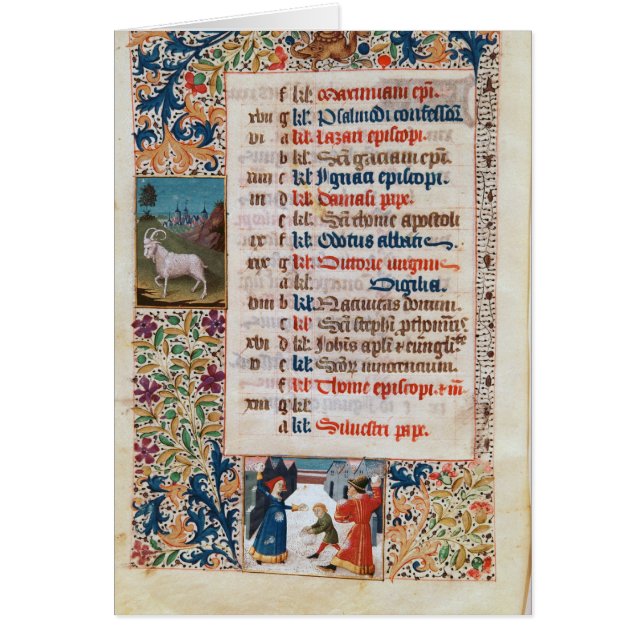 f kl: Maximiani epi.
xviii g kl: Psalmodi confessor
vi a kl: Lazari episcopi.
b kl: Sci gatiani epi.
xiiii c kl: Ignaci episcopi.
iii d kl: Damasi pape.
e kl: Sci thome apostoli
xi f kl: Odotus abbatis
xix g kl: Victorie virginis
a Vigilia
viii b kl: Nativitas domini.
c kl: Sci stephi prthomris
xvi d kl: Johis apli & evnglite
v e kl: Scorum innocentum.
f kl: Thome episcopi & m.
xiii g kl:
a kl: Silvestri pape.